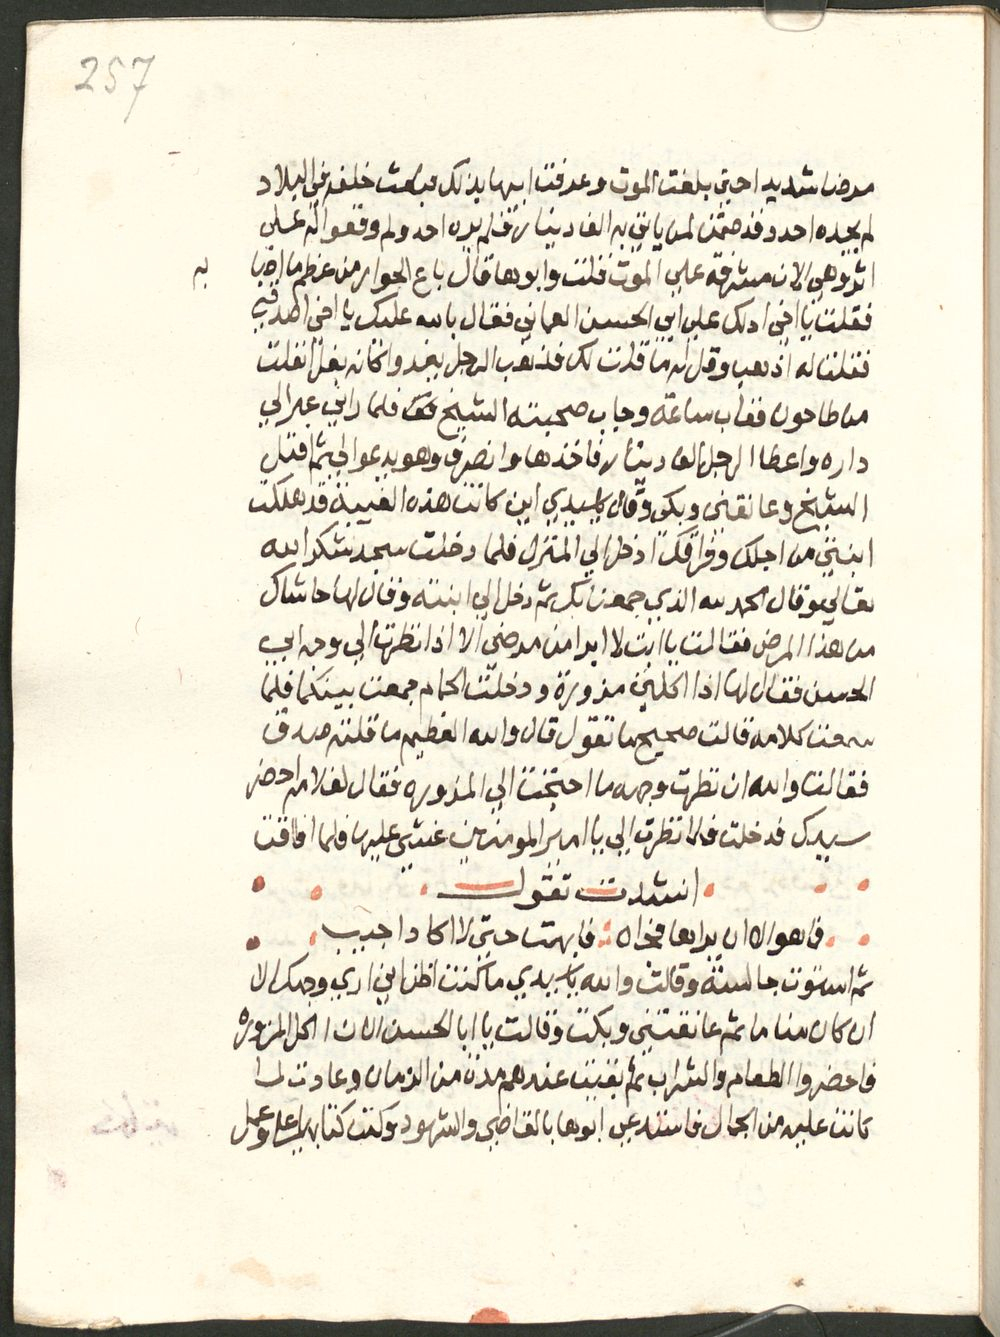 257
مرضا شديدا حتي بلغت الموت وعرفت ابيها بذلك فبعث خلفه في البلاد
لم يجده احد وقد ضمنت لمن ياتي به الف دينار فلم يره احد ولم وقعوا له علي
اثر وهي الان مشرفة علي الموت فقلت وابوها قال باع الجوار من عظم ما اصابه
به
فقلت يا اخي ادلك علي ابي الحسن العماني فقال بالله عليك يا اخي اصدقني
فقلت له اذهب وقل له ما قلت لك فذهب الرجل يعدو كانه بغل انفلت
من طاحون فغاب ساعة وجاب صحبته الشيخ فلما راني عبر الي
داره واعطا الرجل الف دينار فاخذها وانصرف وهو يدعوا لي ثم اقبل
الشيخ وعانقني وبكي وقال يا سيدي اين كانت هذه الغيبة قد هلكت
ابنتي من اجلك وفراقك ادخل الي المنزل فلما دخلت سجد شكر الله
تعالي وقال الحمد لله الذي جمعنا بك ثم دخل الي ابنته وقال لها حاشاك
من هذا المرض فقالت يا ابت لا ابرا من مرضي الا اذا نظرت الي وجه ابي
الحسن فقال لها اذا اكلتي مزورة ودخلت الحمام جمعت بينكما فلما
سمعت كلامه قالت صحيح ما تقول قال والله العظيم ما قلته صدق
فقالت والله ان نظرت وجهه ما احتجت الي المزوره فقال لغلامه احضر
سيدك فدخلت فلما نظرت الي يا امير المومنين غشي عليها فلما افاقت
انشدت تقول
فما هو الا ان يراها فجاه فابهت حتي لا اكاد اجيب
ثم استوت جالسة وقالت والله يا سيدي ما كنت اظن اني اري وجهك الا
ان كان مناما ثم عانقتني وبكت وقالت يا ابا الحسن الان اكل المزوره
فاحضروا الطعام والشراب ثم بقيت عندهم مدة من الزمان وعادت لما
كانت عليه من الجمال فاستدعي ابوها بالقاضي والشهود وكتب كتابها علي وعمل